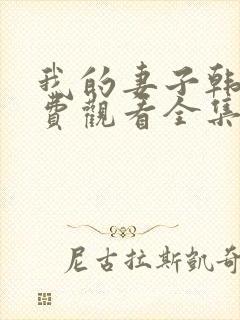 我的妻子韩
費觀看全集
尼古拉斯凱奇